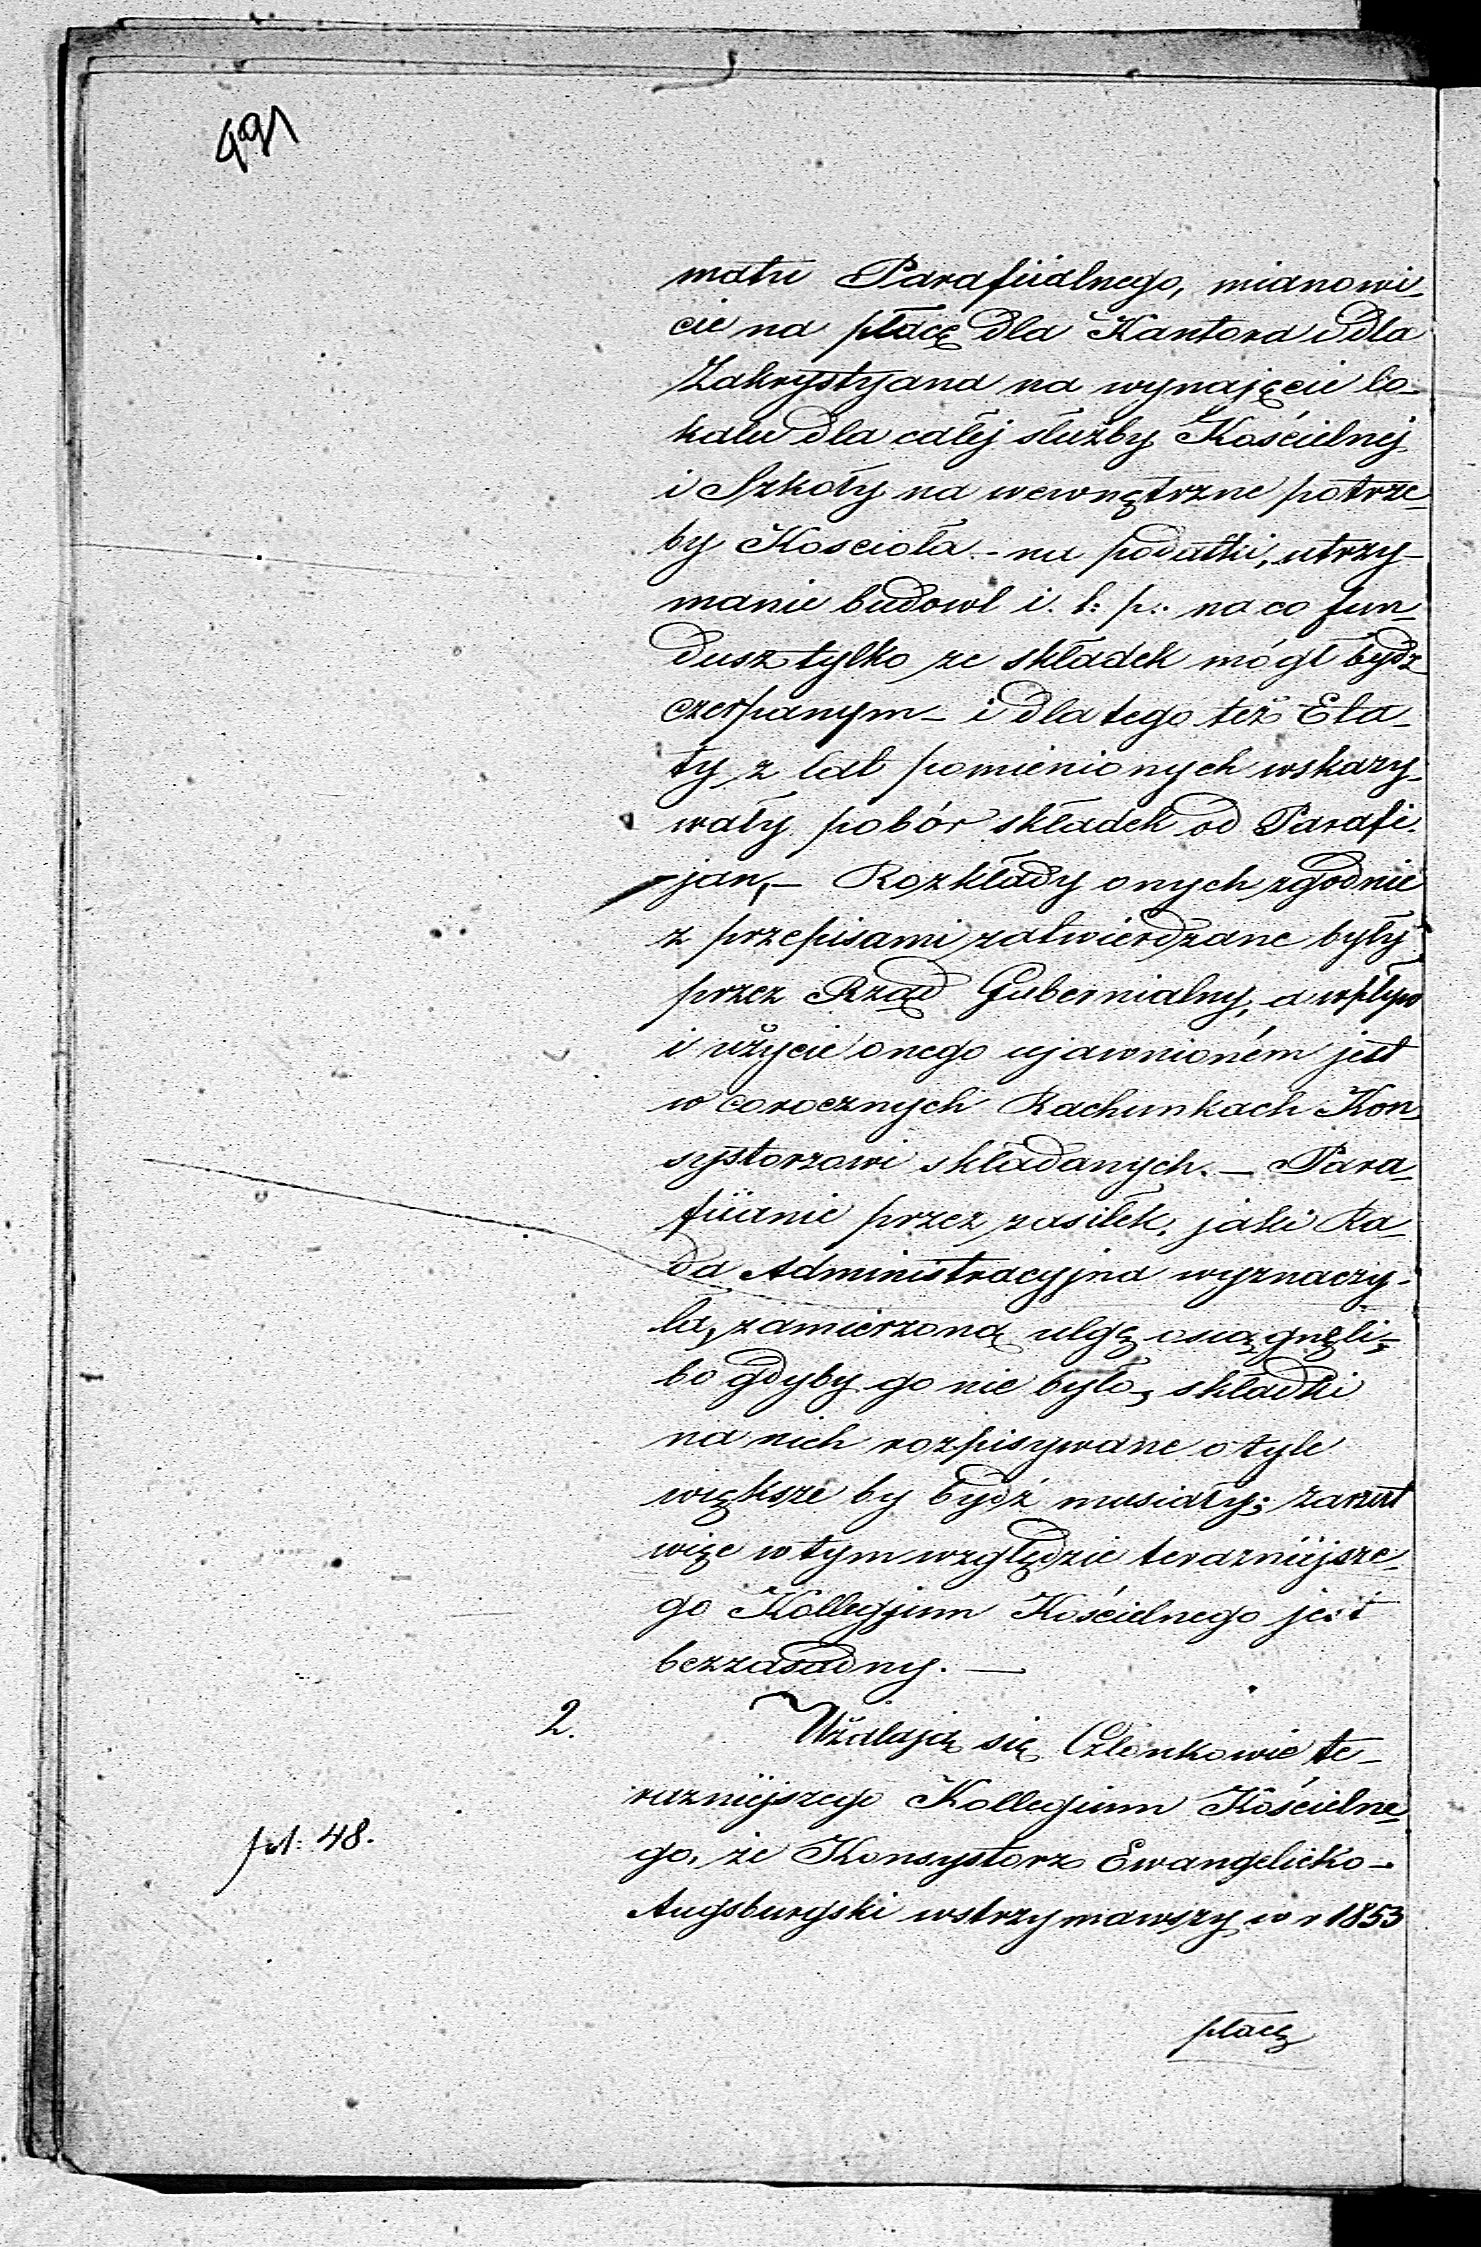 491
matu Parafiialnego, mianowi-
cie na płacę dla Kantora i dla
Zakrystyana na wynajęcie lo-
kalu dla całéj służby Kościelnéj
i Szkoły na wewnętrzne potrze-
by Kościoła - na podatki, utrzy-
manie budowl i. t: p: na co fun-
dusz tylko ze składek mógł bydz
czerpanym - i dla tego też Eta-
ty z lat pomienionych wskazy-
wały pobór składek od Parafi-
jan, - Rozkłady onych zgodnie
z przepisami zatwierdzane były
przez Rząd Gubernialny, a wpływ
i użycie onego ujawnioném jest
w corocznych Rachunkach Kon-
systorzowi składanych. - Para-
fiianie przez zasiłek, jaki Ra-
da Administracyjna wyznaczy-
ła, zamierzoną ulgę osiągnęli,
bo gdyby go nie było, składki
na nich rozpisywane o tyle
większe by bydź musiały; zarzut
więc w tym względzie terazniejsze-
go Kollegjum Kościelnego jest
bezzasadny. -
2. Użalają się Członkowie te-
razniejszego Kollegium Kościelne-
fol: 48. go, że Konsystorz Ewangelicko-
Augsburgski wstrzymawszy w r 1853
płacę